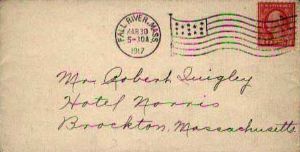 FALL RIVER, MASS.
MAR 30
5-10A
1917
Mr. Robert Quigley
Hotel Norris
Brockton, Massachusetts